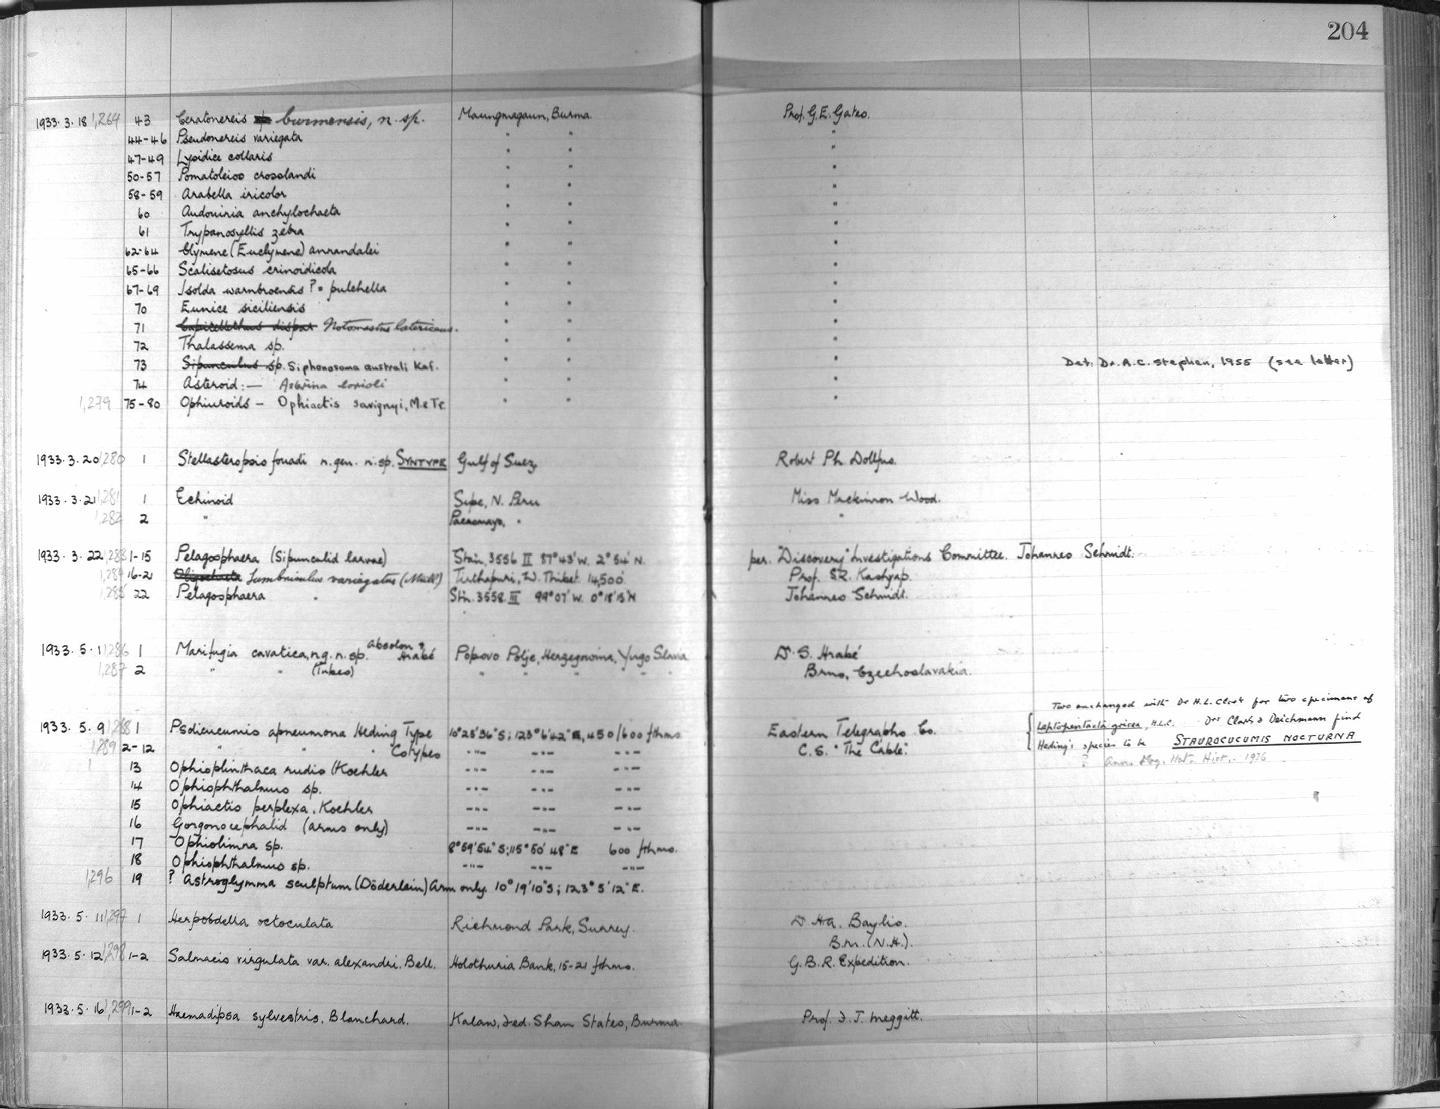 204
1933.3.18 1,264 43 Ceratonereis burmensis, n. sp. Maungmagaun, Burma. Prof. G.E. Gates.
44-46 Pseudonereis variegata " " "
47-49 Lysidice collaris " " "
50-57 Pomatoleios crosslandi " " "
58-59 Arabella iricolor " " "
60 Audouinia anchylochaeta " " "
61 Trypanosyllis zebra " " "
62-64 Clymene (Euclymene) annandalei " " "
65-66 Scalisetosus crinoidicola " " "
67-69 Isolda warnbroensis ? = pulchella " " "
70 Eunice siciliensis " " "
71 Capitellethus dispar Notomastus latericeus. " " "
72 Thalassema sp. " " "
73 Sipunculus sp. Siphonosoma australi Kef. " " " Det. Dr. A.C. Stephen, 1955 (see letter)
74 Asteroid:— Asterina lorioli " " "
1,279 75-80 Ophiuroids — Ophiactis savignyi, M. & Tr. " " "
1933.3.20 1,280 1 Stellasteropsis fouadi n.gen. n.sp. SYNTYPE Gulf of Suez Robert Ph. Dollfus.
1933.3.21 1,281 1 Echinoid Sipe, N. Peru Miss Mackinnon Wood.
1,282 2 " "
1933.3.22 1,283 1-15 Pelagosphaera (Sipunculid larvae) Stn. 3556 II 87°43'W. 2°54'N. per. "Discovery" Investigations Committee. Johannes Schmidt.
1,284 16-21 Oligochaeta Lumbriculus variegatus (Müll) Tirthapuri, W. Thibet. 14,500' Prof. S.R. Kashyap.
1,285 22 Pelagosphaera " Stn. 3558 III 99°07'W. 0°18'15"N Johannes Schmidt.
1933.5.1 1,286 1 Marifugia cavatica, n.g. n.sp. Absolon & Hrabé Popovo Polje, Herzegovina, Yugo Slavia Dr S. Hrabé
1,287 2 " " (Tubes) " " " " Brno, Czechoslavakia.
Two exchanged with Dr H.L. Clark for two specimens of
1933.5.9 1,288 1 Psolicucumis apneumona Heding Type 10°25'36"S; 123°6'42"E, 450/600 fthms Eastern Telegraphs Co. Leptopentacta grisea, H.L.C. Drs Clark & Deichmann find
1,289 2-12 " " " Cotypes C.S. "The Cable". Heding's species to be STAUROCUCUMIS NOCTURNA
13 Ophioplinthaca rudis (Koehler —"— —"— —"— ? Ann. Mag. Nat. Hist. 1936
14 Ophiophthalmus sp. —"— —"— —"—
15 Ophiactis perplexa, Koehler —"— —"— —"—
16 Gorgonocephalid (arms only) —"— —"— —"—
17 Ophiolimna sp. 8°59'54"S; 115°50'48"E 600 fthms.
18 Ophiophthalmus sp. —"— —"— —"—
1,296 19 ? Astroglymma sculptum (Döderlein) Arm only. 10°19'10"S; 123°5'12"E.
1933.5.11 1,297 1 Herpobdella octoculata Richmond Park, Surrey. Dr H.A. Baylis.
B.M. (N.H.).
1933.5.12 1,298 1-2 Salmacis virgulata var. alexandri, Bell. Holothuria Bank, 15-21 fthms. G.B.R. Expedition.
1933.5.16 1,299 1-2 Haemadipsa sylvestris, Blanchard. Kalaw, Fed. Shan States, Burma Prof. F.J. Meggitt.